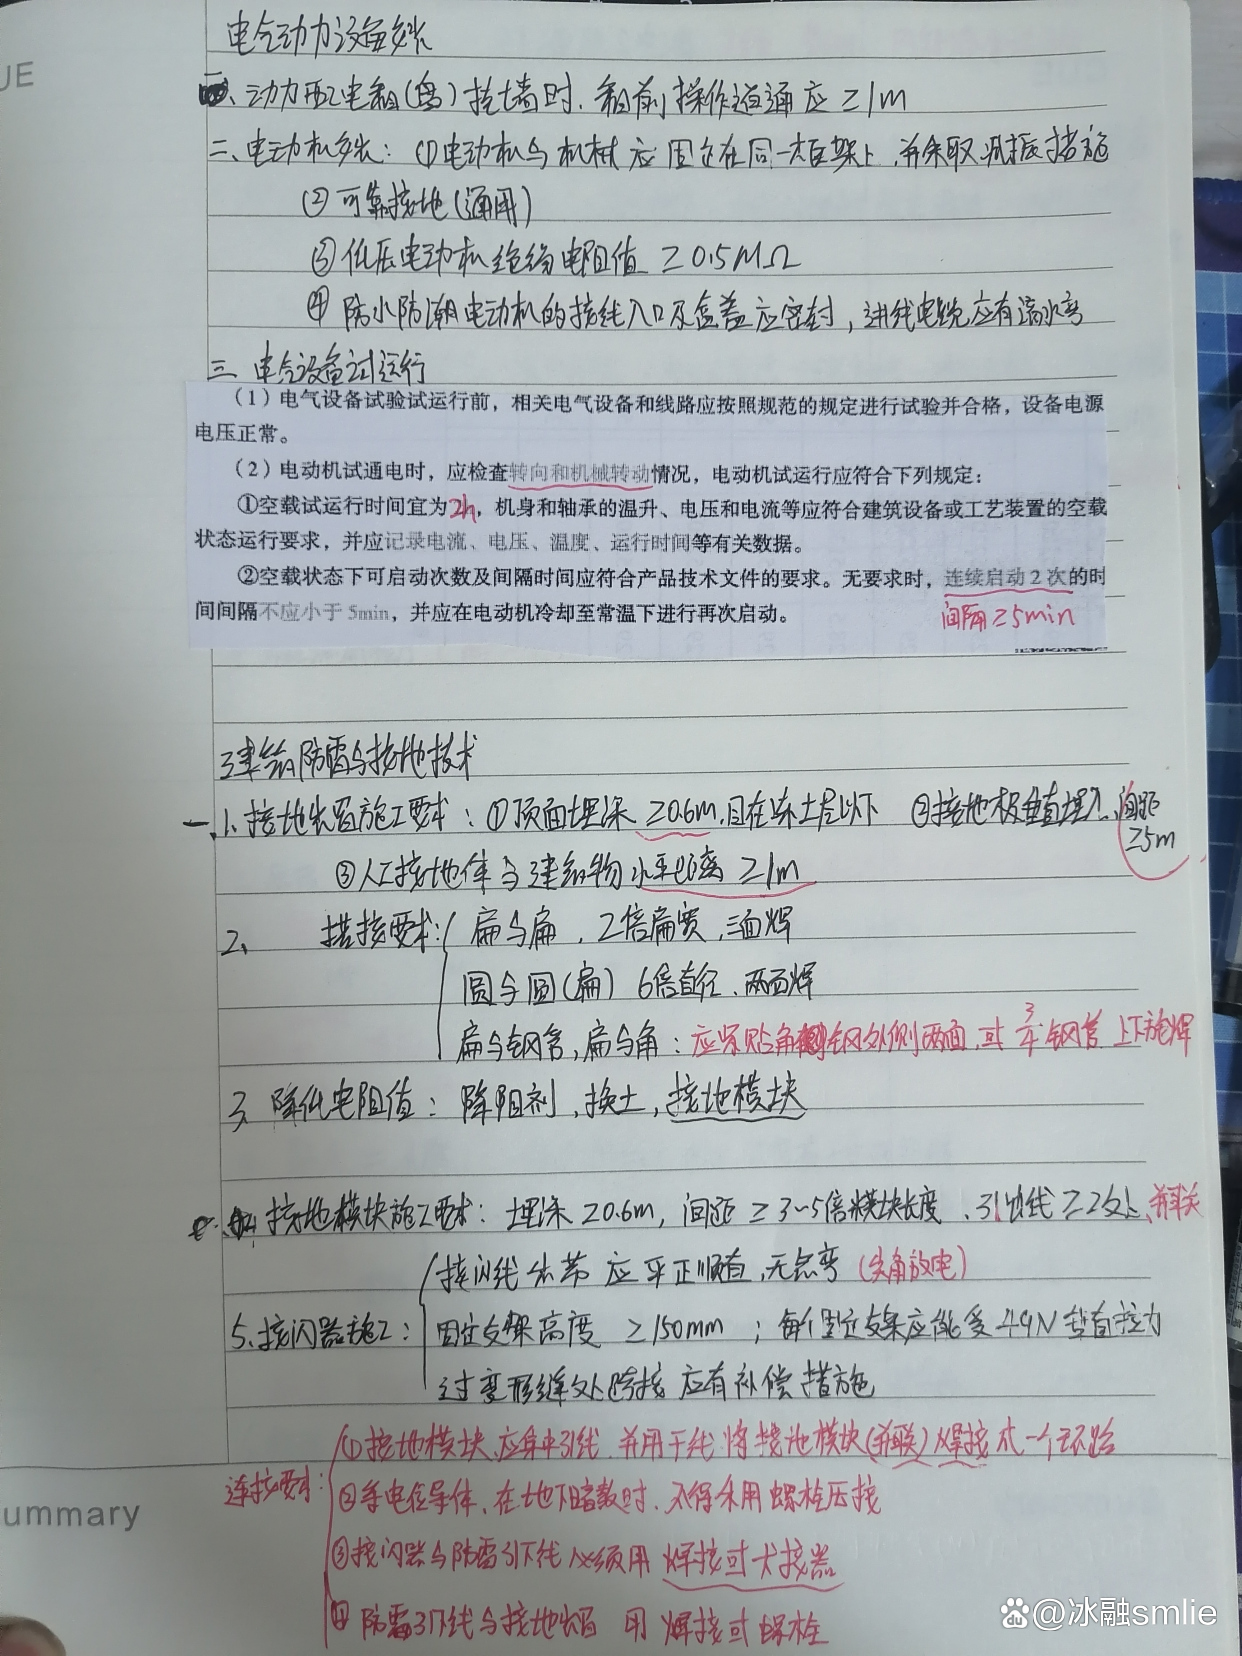 UE
电气动力设备安装
一、动力配电箱(盘)挂墙时、箱前操作通道应≥1m
二、电动机安装：①电动机与机械应固定在同一框架上,并采取减振措施
②可靠接地(通用)
③低压电动机绝缘电阻值≥0.5MΩ
④防水防潮电动机的接线入口及盒盖应密封，进线电缆应有滴水弯
三 电气设备试运行
（1）电气设备试验试运行前，相关电气设备和线路应按照规范的规定进行试验并合格，设备电源
电压正常。
（2）电动机试通电时，应检查转向和机械转动情况，电动机试运行应符合下列规定：
①空载试运行时间宜为2h，机身和轴承的温升、电压和电流等应符合建筑设备或工艺装置的空载
状态运行要求，并应记录电流、电压、温度、运行时间等有关数据。
②空载状态下可启动次数及间隔时间应符合产品技术文件的要求。无要求时，连续启动2次的时
间间隔不应小于5min，并应在电动机冷却至常温下进行再次启动。
间隔≥5min
建筑防雷与接地技术
一、1.接地装置施工要求：①顶面埋深≥0.6m,且在冻土层以下 ②接地极垂直埋入、间距
≥5m
③人工接地体与建筑物水平距离≥1m
2、 搭接要求: 扁与扁，2倍扁宽,三面焊
圆与圆(扁) 6倍直径、两面焊
扁与钢管,扁与角：应紧贴角钢外侧两面,或3/4钢管 上下施焊
3、降低电阻值：降阻剂,换土,接地模块
4、接地模块施工要求：埋深≥0.6m，间距≥3~5倍模块长度、引出线≥2处、并联
接闪线和带应平正顺直,无急弯(尖角放电)
5.接闪器施工：固定支架高度≥150mm；每个固定支架应能受49N垂直拉力
过变形缝处跨接应有补偿措施
①接地模块应集中引线 并用干线将接地模块(并联)焊接成一个环路
连接要求： ②等电位导体、在地下暗敷时、不得采用螺栓压接
③接闪器与防雷引下线必须用焊接或卡接器
④防雷引下线与接地装置 用 焊接或螺栓
ummary
Bai du @冰融smlie